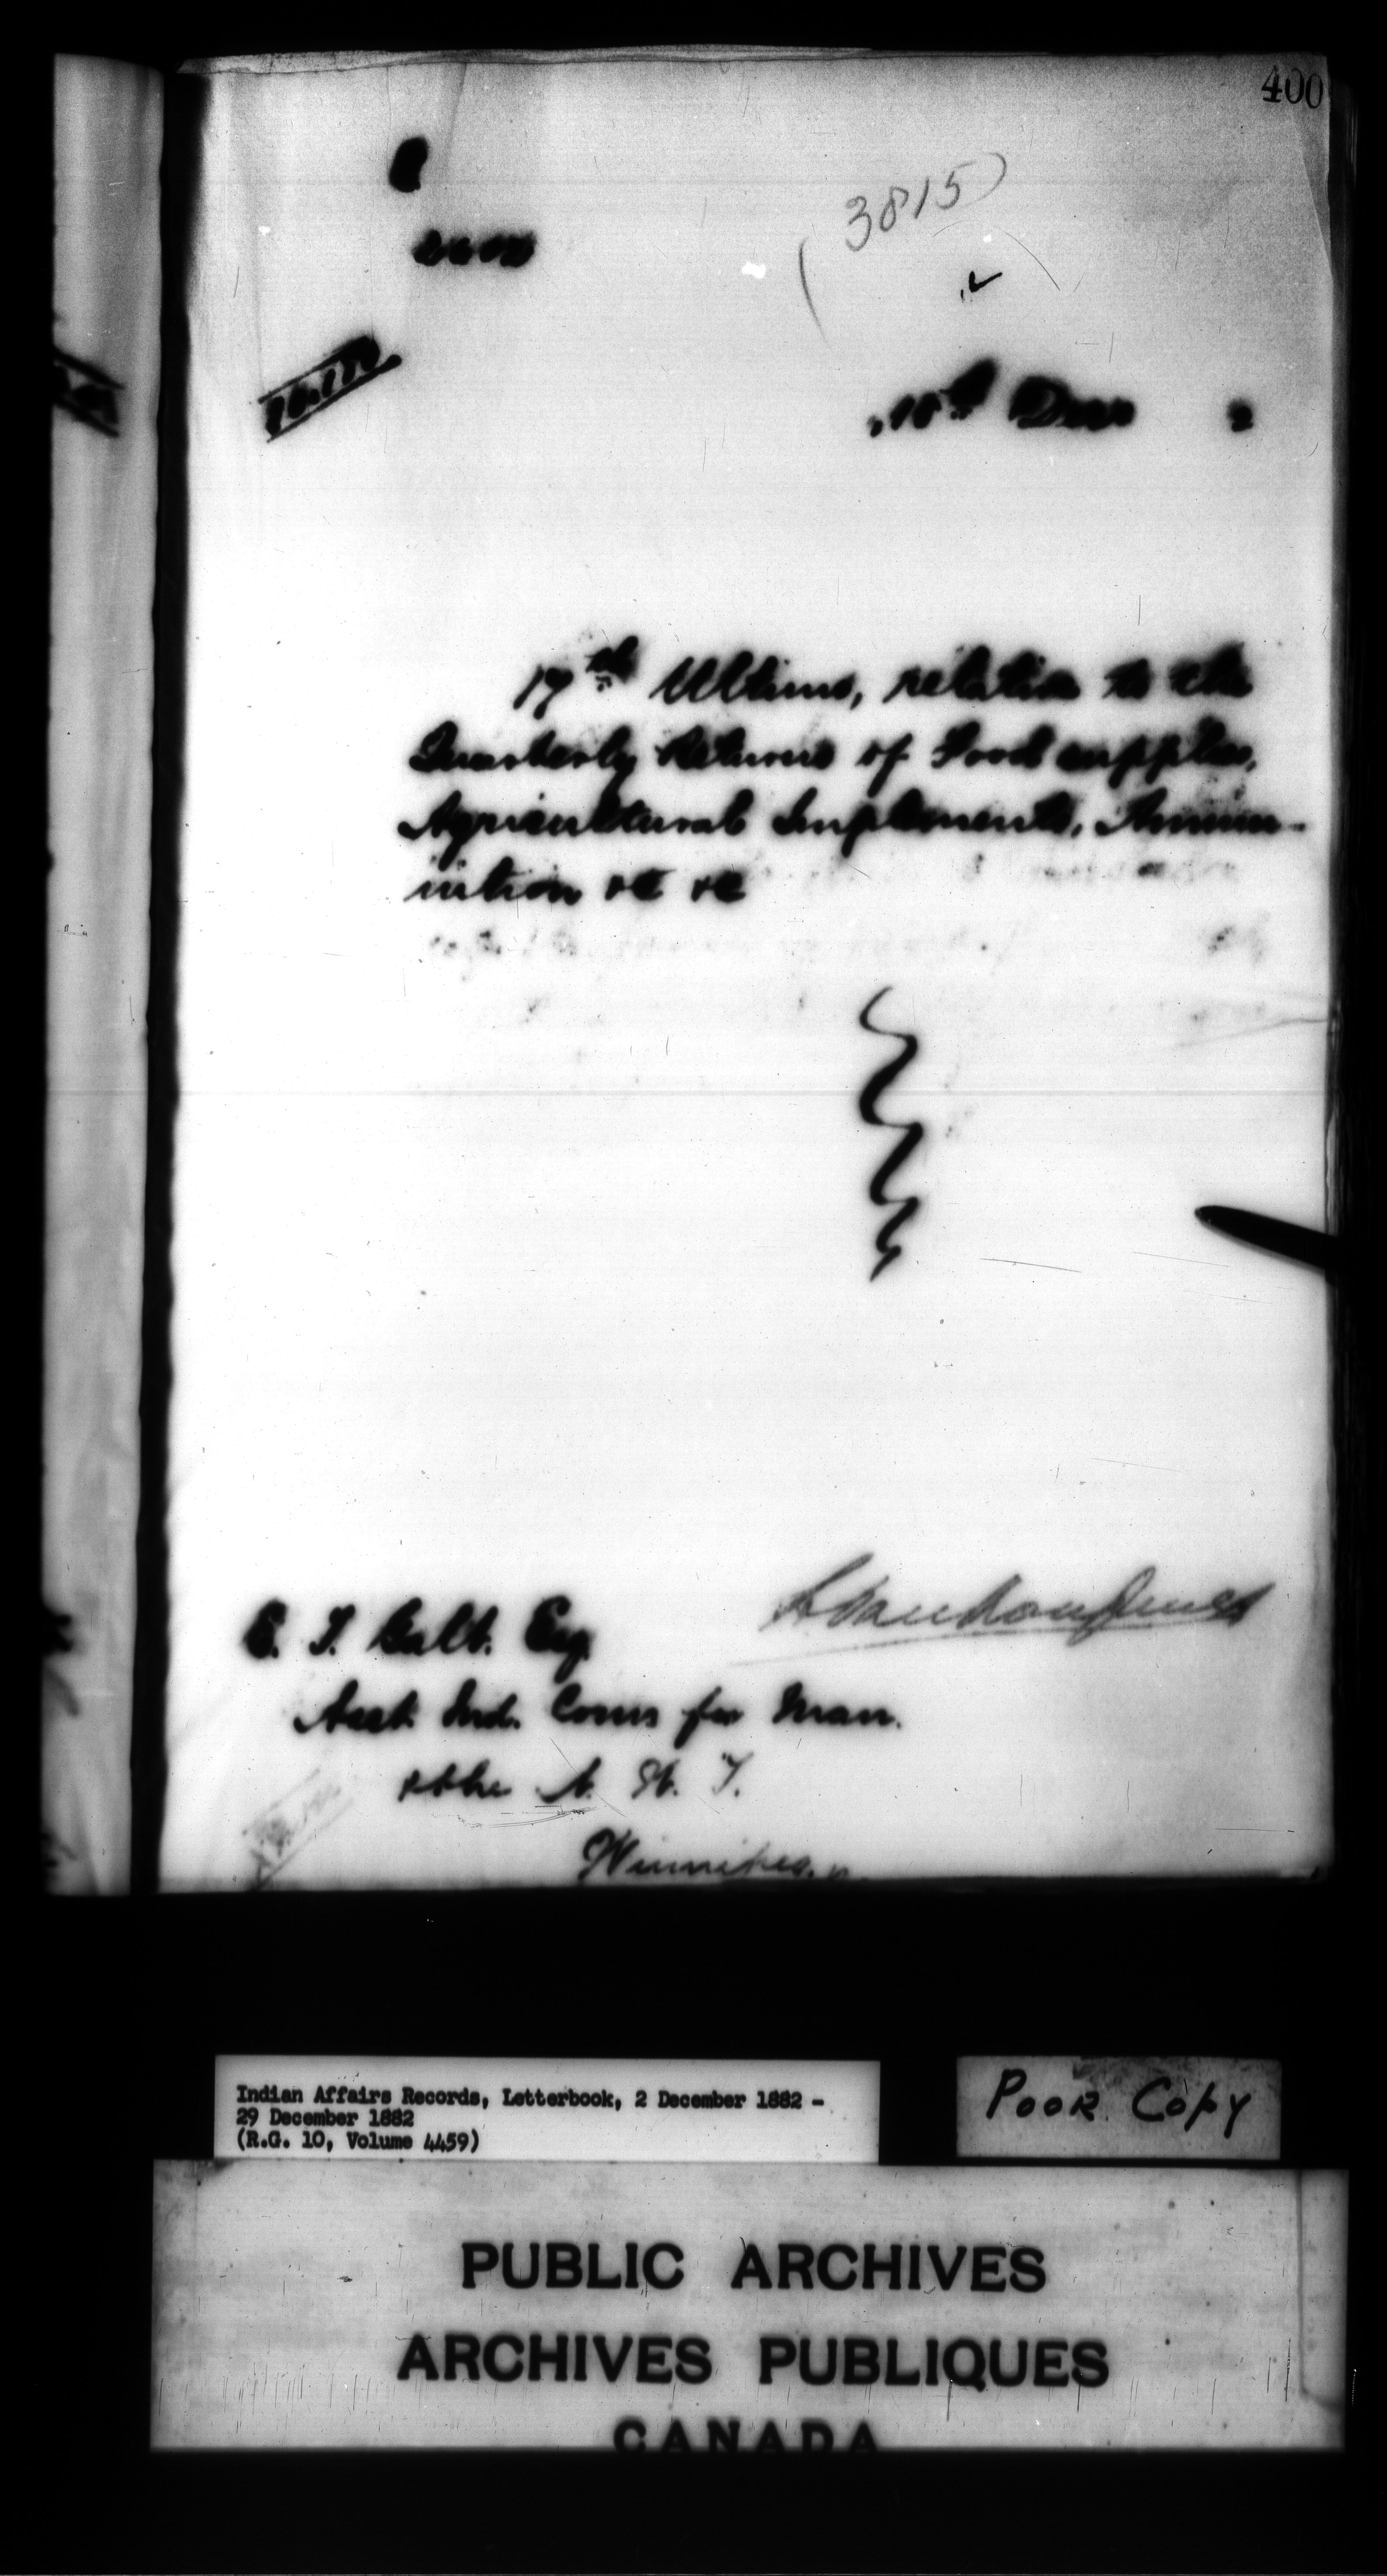 400
(3815)
Decr 2
17th Ultimo, relative to the
Quarterly Returns of Food supplies,
Agricultural Implements, Ammu-
nition &c &c
E. T. Galt. Esq.
Asst. Ind. Comr for Man.
& the N. W. T.
Winnipeg.
Indian Affairs Records, Letterbook, 2 December 1882 -
29 December 1882
(R.G. 10, Volume 4459)
POOR Copy
PUBLIC ARCHIVES
ARCHIVES PUBLIQUES
CANADA